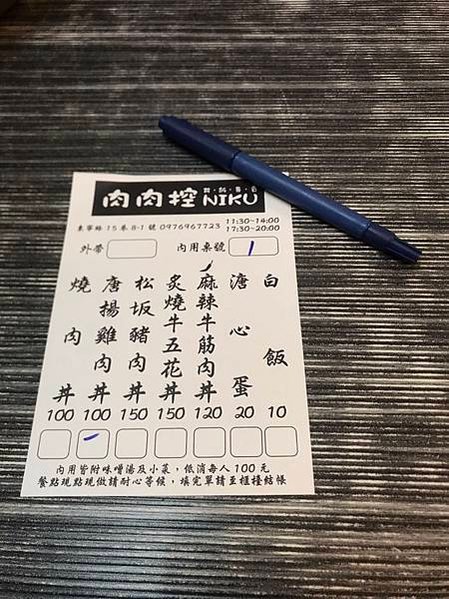 肉肉控 NIKU
東寧路15巷8-1號 0976967723 11:30~14:00
17:30~20:00
外帶 內用桌號 1
燒肉丼 100
唐揚雞肉丼 100
松坂豬肉丼 150
炙燒牛五花丼 150
麻辣牛筋肉丼 120
溏心蛋 20
白飯 10
內用皆附味噌湯及小菜，低消每人100元
餐點現點現做請耐心等候，填完單請至櫃檯結帳